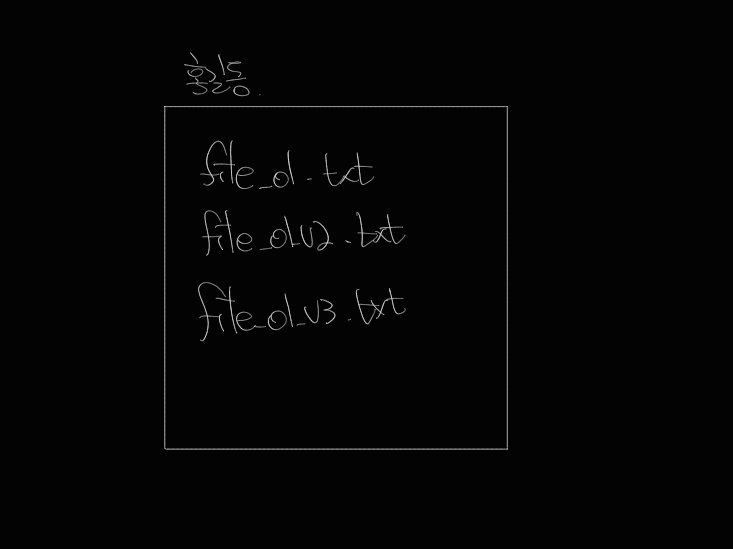 활동.
file_01.txt
file_01_v2.txt
file_01_v3.txt